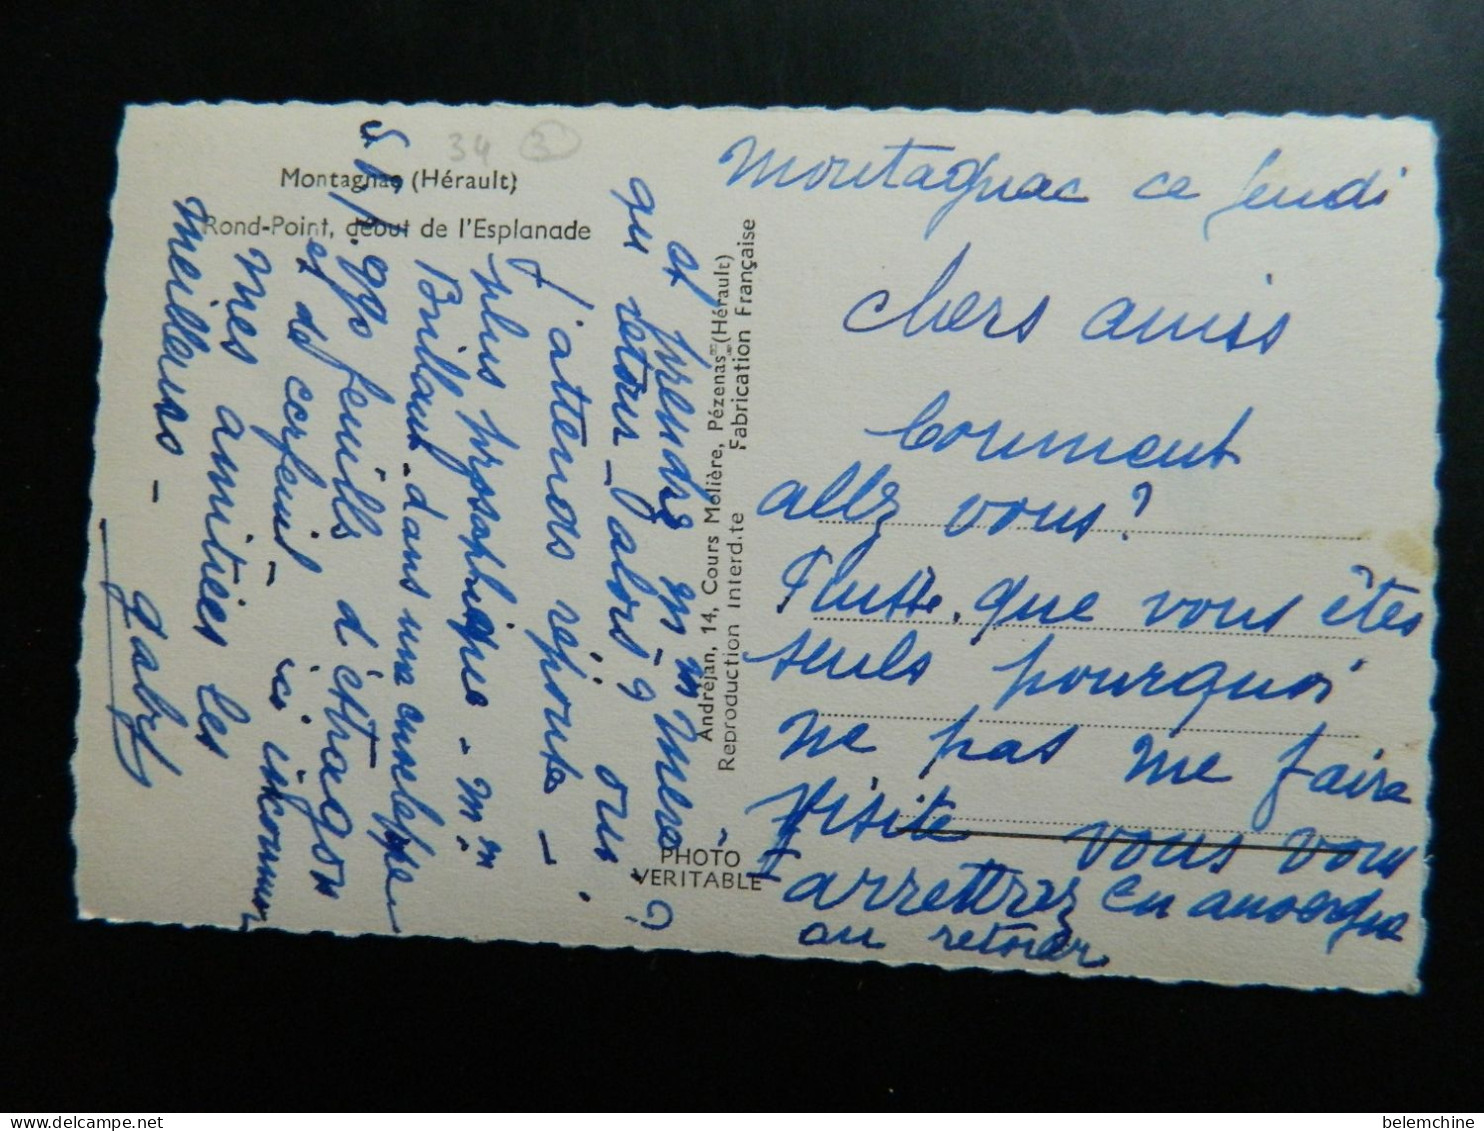 34 3
Montagnac (Hérault)
Rond-Point, début de l'Esplanade
Andréjan, 14, Cours Molière, Pézenas (Hérault)
Reproduction interdite Fabrication Française
PHOTO
VERITABLE
Montagnac ce Jeudi
chers amis
Comment
allez vous?
que vous êtes
seuls pourquoi
ne pas me faire
visite vous vous
arrettrez en auvergne
au retour
et prendre m mère
au retour alors? ous
J'attends réponse -
plus
Brillant dans une enveloppe
S.V.P. qqs feuills d'éstragon
et de cerfeuil - ici inconnu
Mes amitiées les
meilleurs -
gaby
belemchine